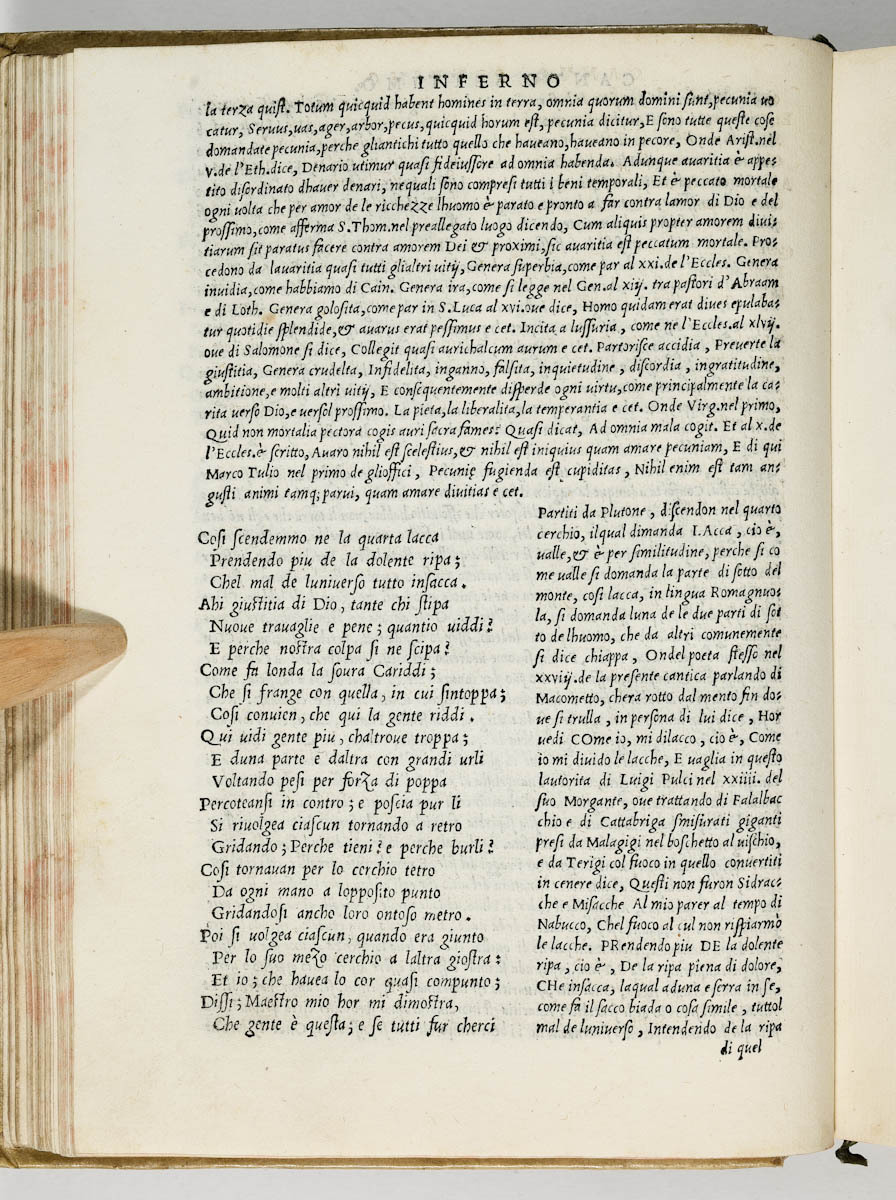 INFERNO
la terza quist. Totum quicquid habent homines in terra, omnia quorum domini sunt, pecunia uo
catur, Seruus, uas, ager, arbor, pecus, quicquid horum est, pecunia dicitur, E sono tutte queste cose
domandate pecunia, perche gliantichi tutto quello che haueano, haueano in pecore, Onde Arist. nel
V. de l'Eth. dice, Denario utimur quasi fideiussore ad omnia habenda. Adunque auaritia è appe-
tito disordinato dhauer denari, nequali sono compresi tutti i beni temporali, Et è peccato mortale
ogni uolta che per amor de le ricchezze lhuomo è parato e pronto a far contra lamor di Dio e del
prossimo, come afferma S. Thom. nel preallegato luogo dicendo, Cum aliquis propter amorem diui-
tiarum sit paratus facere contra amorem Dei & proximi, sic auaritia est peccatum mortale. Pro-
cedono da lauaritia quasi tutti glialtri uitij, Genera superbia, come par al xxi. de l'Eccles. Genera
inuidia, come habbiamo di Cain. Genera ira, come si legge nel Gen. al xiij. tra pastori d'Abraam
e di Loth. Genera golosita, come par in S. Luca al xvi. oue dice, Homo quidam erat diues epulaba-
tur quotidie splendide, & auarus erat pessimus e cet. Incita a lussuria, come ne l'Eccles. al xlvij.
oue di Salomone si dice, Collegit quasi aurichalcum aurum e cet. Partorisce accidia, Preuerte la
giustitia, Genera crudelta, Infidelita, inganno, falsita, inquietudine, discordia, ingratitudine,
ambitione, e molti altri uitij, E consequentemente disperde ogni uirtu, come principalmente la ca-
rita uerso Dio, e uersol prossimo. La pieta, la liberalita, la temperantia e cet. Onde Virg. nel primo,
Quid non mortalia pectora cogis auri sacra fames: Quasi dicat, Ad omnia mala cogit. Et al x. de
l'Eccles. è scritto, Auaro nihil est scelestius, & nihil est iniquius quam amare pecuniam, E di qui
Marco Tulio nel primo de glioffici, Pecunię fugienda est cupiditas, Nihil enim est tam an-
gusti animi tamq; parui, quam amare diuitias e cet.
Cosi scendemmo ne la quarta lacca
Prendendo piu de la dolente ripa;
Chel mal de luniuerso tutto insacca.
Ahi giustitia di Dio, tante chi stipa
Nuoue trauaglie e pene; quantio uiddi?
E perche nostra colpa si ne scipa?
Come fa londa la soura Cariddi;
Che si frange con quella, in cui sintoppa;
Cosi conuien, che qui la gente riddi.
Qui uidi gente piu, chaltroue troppa;
E duna parte e daltra con grandi urli
Voltando pesi per forza di poppa
Percoteansi in contro; e poscia pur li
Si riuolgea ciascun tornando a retro
Gridando; Perche tieni? e perche burli?
Cosi tornauan per lo cerchio tetro
Da ogni mano a lopposito punto
Gridandosi ancho loro ontoso metro.
Poi si uolgea ciascun, quando era giunto
Per lo suo mezo cerchio a laltra giostra:
Et io; che hauea lo cor quasi compunto;
Dissi; Maestro mio hor mi dimostra,
Che gente è questa; e se tutti fur cherci
Partiti da Plutone, discendon nel quarto
cerchio, ilqual dimanda LAcca, cio è,
ualle, & è per similitudine, perche si co
me ualle si domanda la parte di sotto del
monte, cosi lacca, in lingua Romagnuo-
la, si domanda luna de le due parti di sot
to de lhuomo, che da altri comunemente
si dice chiappa, Ondel poeta stesso nel
xxviij. de la presente cantica parlando di
Macometto, chera rotto dal mento fin do-
ue si trulla, in persona di lui dice, Hor
uedi COme io, mi dilacco, cio è, Come
io mi diuido le lacche, E uaglia in questo
lautorita di Luigi Pulci nel xxiiii. del
suo Morgante, oue trattando di Falalbac
chio e di Cattabriga smisurati giganti
presi da Malagigi nel boschetto al uischio,
e da Terigi col fuoco in quello conuertiti
in cenere dice, Questi non furon Sidrac-
che e Misacche Al mio parer al tempo di
Nabucco, Chel fuoco al cul non rispiarmò
le lacche. PRendendo piu DE la dolente
ripa, cio è, De la ripa piena di dolore,
CHe insacca, laqual aduna e serra in se,
come fa il sacco biada o cosa simile, tuttol
mal de luniuerso, Intendendo de la ripa
di quel